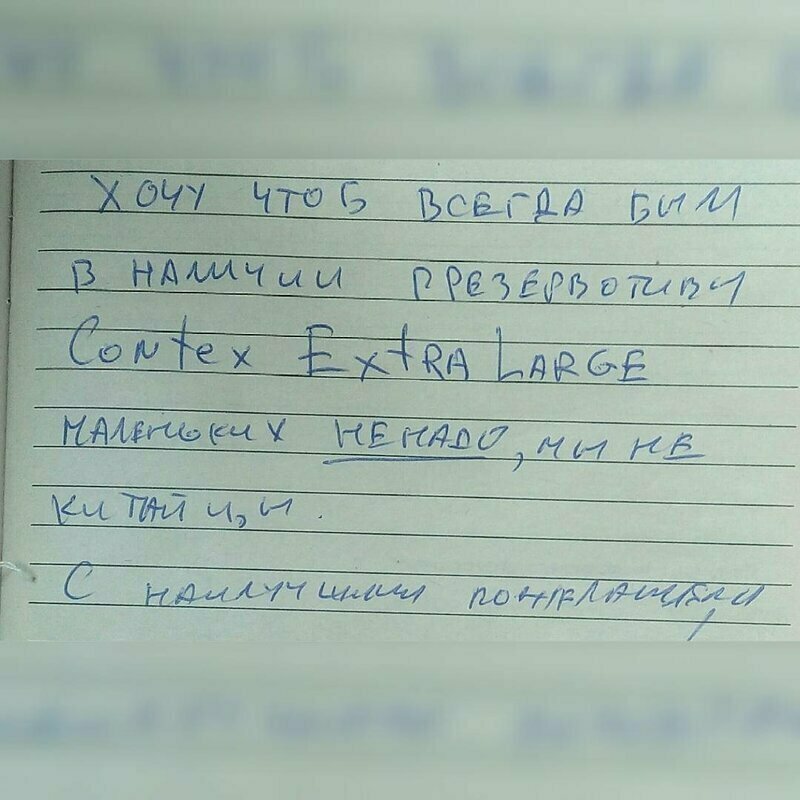 ХОЧУ ЧТОБ ВСЕГДА БЫЛИ
В НАЛИЧИИ ПРЕЗЕРВОТИВЫ
Contex Extra Large
МАЛЕНЬКИХ НЕНАДО, МЫ НЕ
КИТАЙЦЫ.
С НАИЛУЧШИМИ ПОЖЕЛАНИЯМИ,